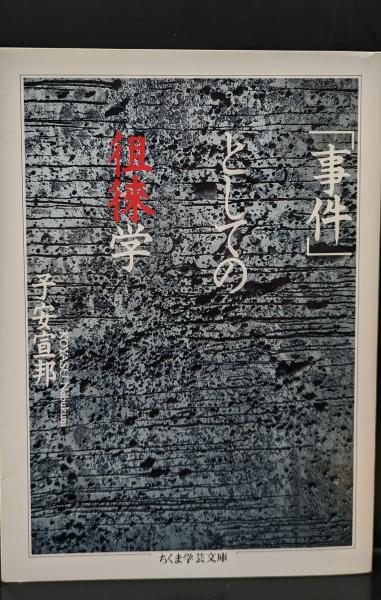 「事件」
としての
徂徠学
子安宣邦
KOYASU Nobukuni
ちくま学芸文庫